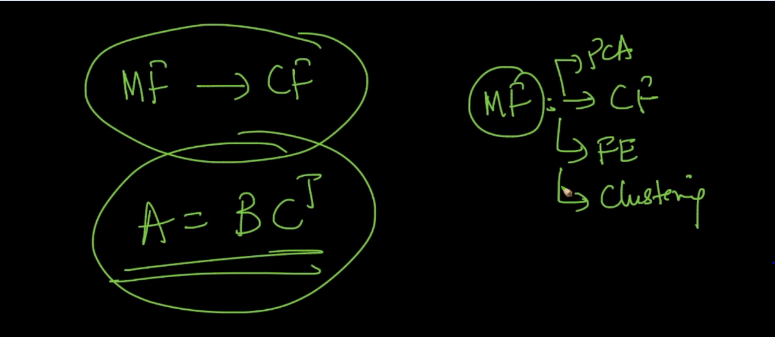 MF → CF
A = BCᵀ
MF : → PCA
→ CF
→ FE
→ Clustering